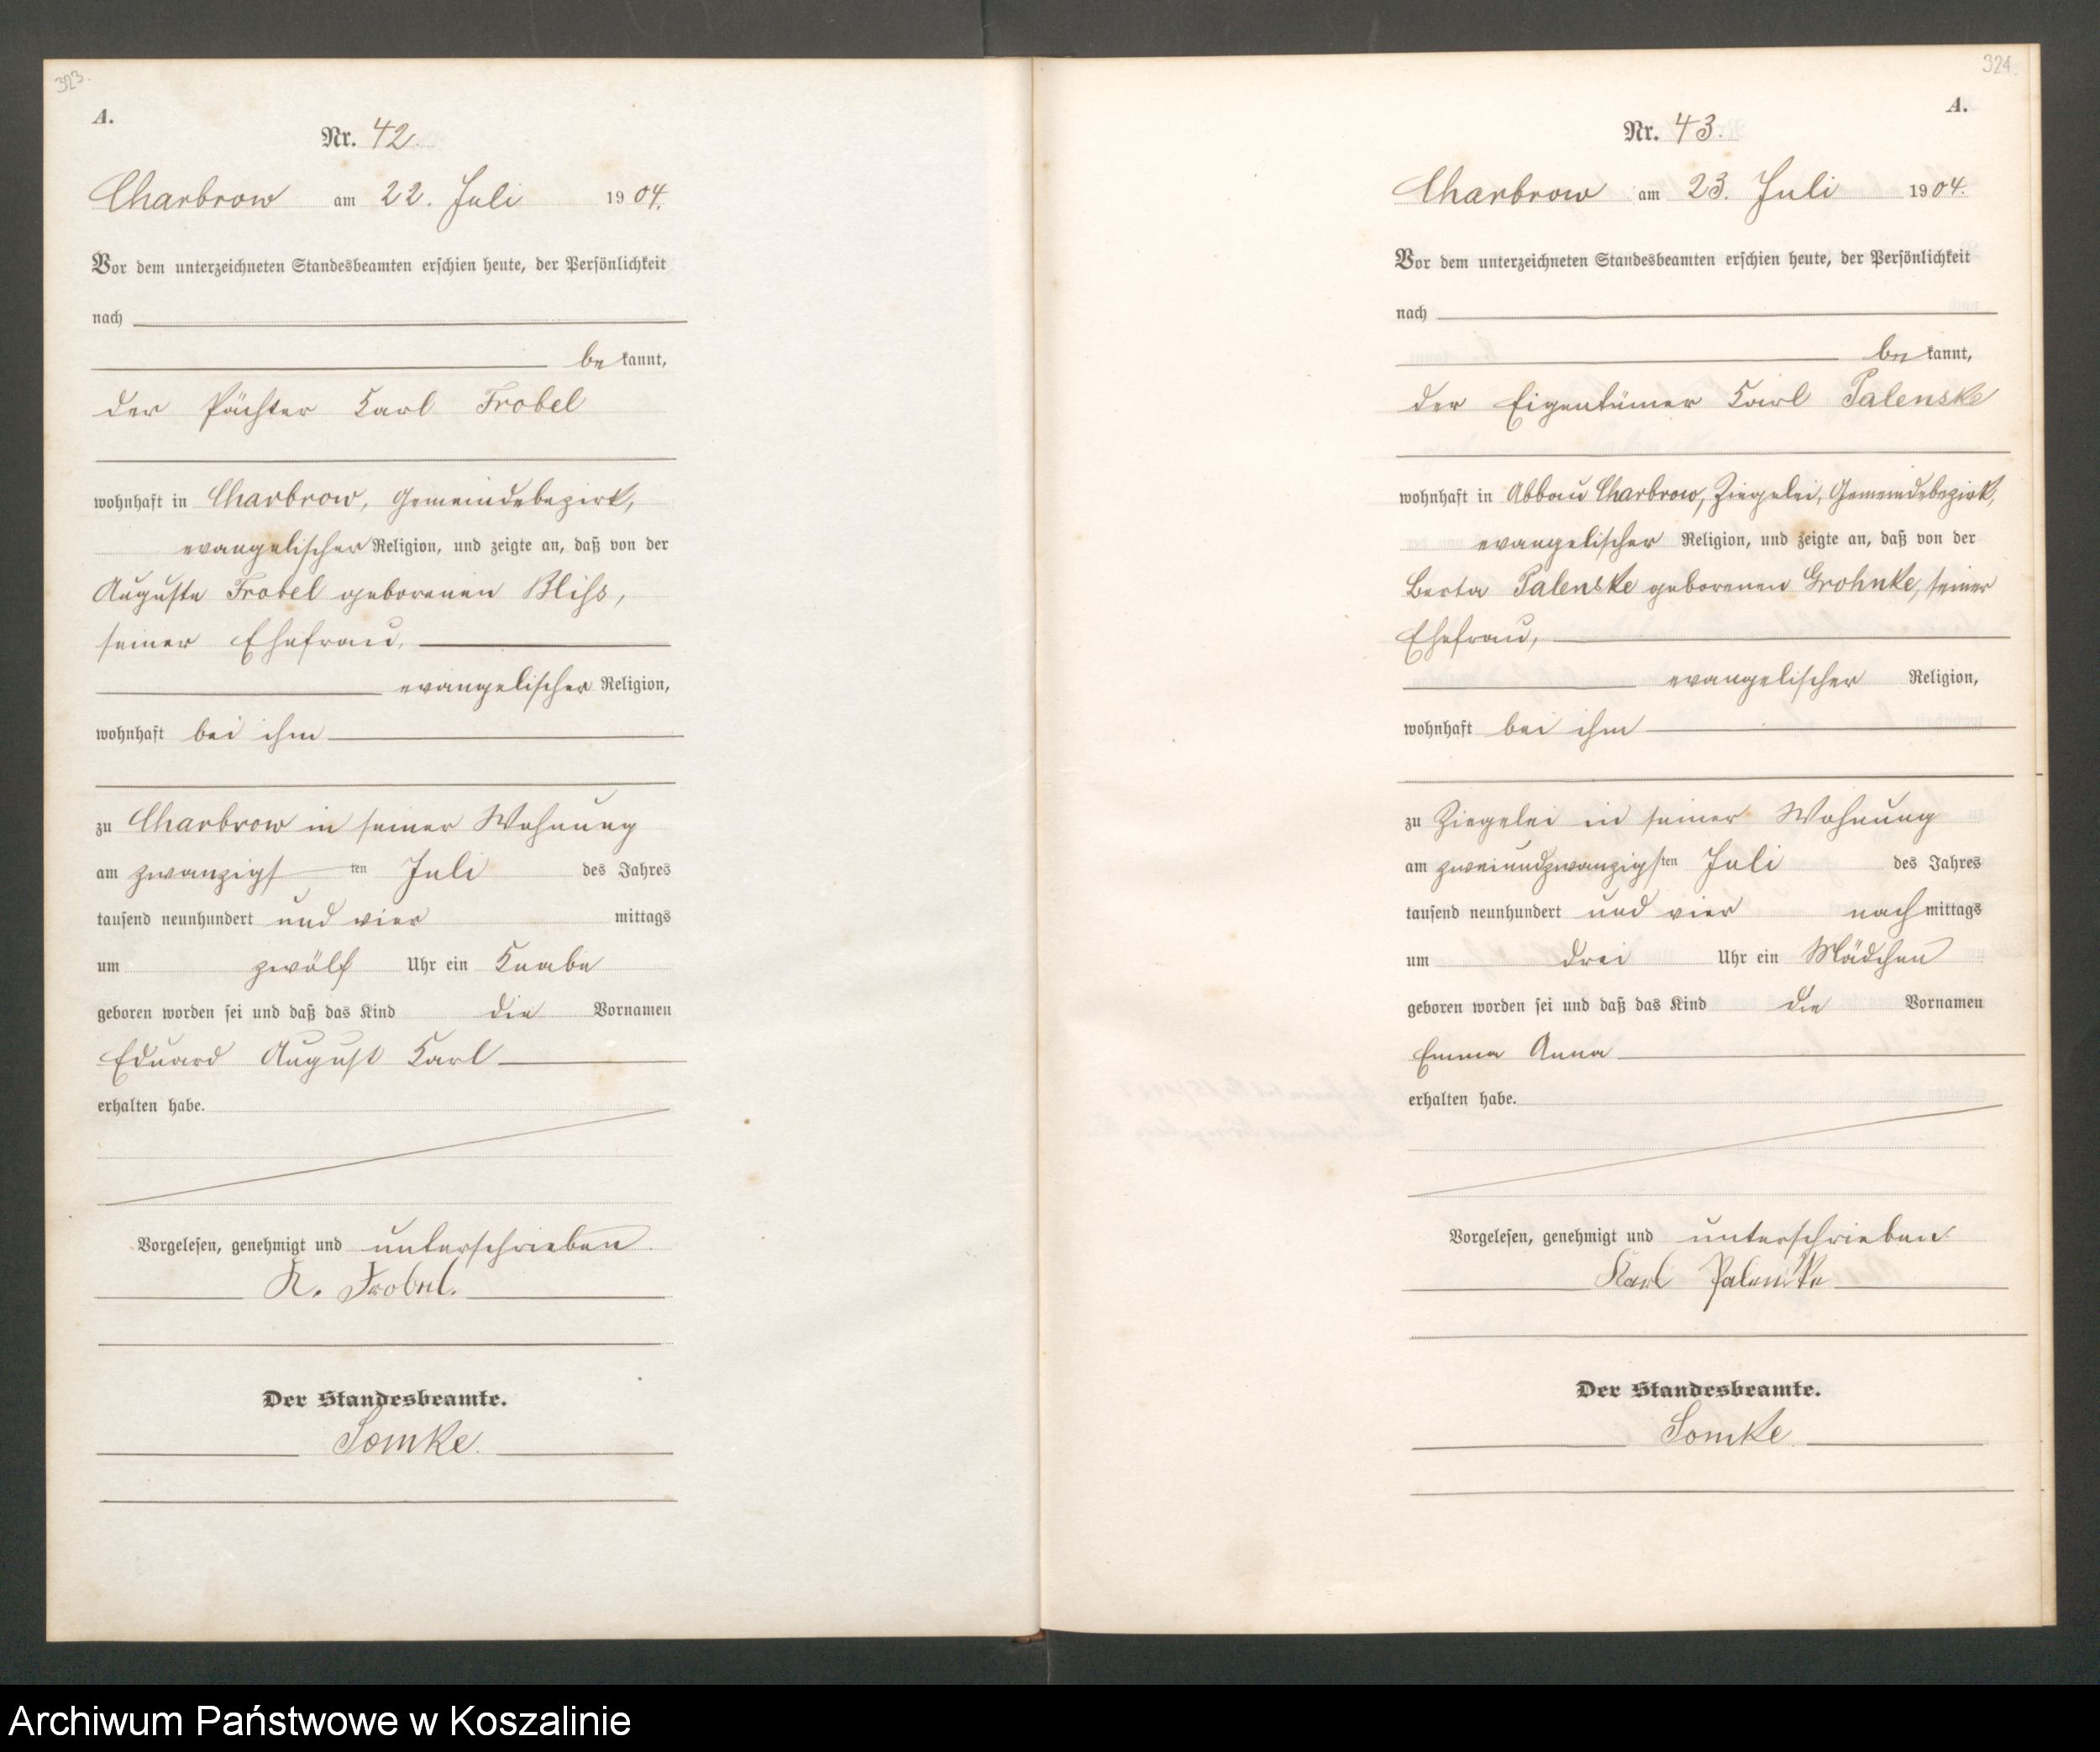 323.
A.
Nr. 42.
Charbrow am 22. Juli 1904.
Vor dem unterzeichneten Standesbeamten erschien heute, der Persönlichkeit
nach
be kannt,
der Pächter Karl Frobel
wohnhaft in Charbrow, Gemeindebezirk,
evangelischer Religion, und zeigte an, daß von der
Auguste Frobel geborenen Bliß,
seiner Ehefrau,
evangelischer Religion,
wohnhaft bei ihm
zu Charbrow in seiner Wohnung
am zwanzigsten Juli des Jahres
tausend neunhundert und vier mittags
um zwölf Uhr ein Knabe
geboren worden sei und daß das Kind die Vornamen
Eduard August Karl
erhalten habe.
Vorgelesen, genehmigt und unterschrieben.
K. Frobel.
Der Standesbeamte.
Somke.
324.
A.
Nr. 43.
Charbrow am 23. Juli 1904.
Vor dem unterzeichneten Standesbeamten erschien heute, der Persönlichkeit
nach
be kannt,
der Eigentümer Karl Palenske
wohnhaft in Abbau Charbrow, Ziegelei, Gemeindebezirk,
evangelischer Religion, und zeigte an, daß von der
Berta Palenske geborenen Grohnke, seiner
Ehefrau,
evangelischer Religion,
wohnhaft bei ihm
zu Ziegelei in seiner Wohnung
am zweiundzwanzigsten Juli des Jahres
tausend neunhundert und vier nach mittags
um drei Uhr ein Mädchen
geboren worden sei und daß das Kind die Vornamen
Emma Anna
erhalten habe.
Vorgelesen, genehmigt und unterschrieben.
Karl Palenske
Der Standesbeamte.
Somke
Archiwum Państwowe w Koszalinie